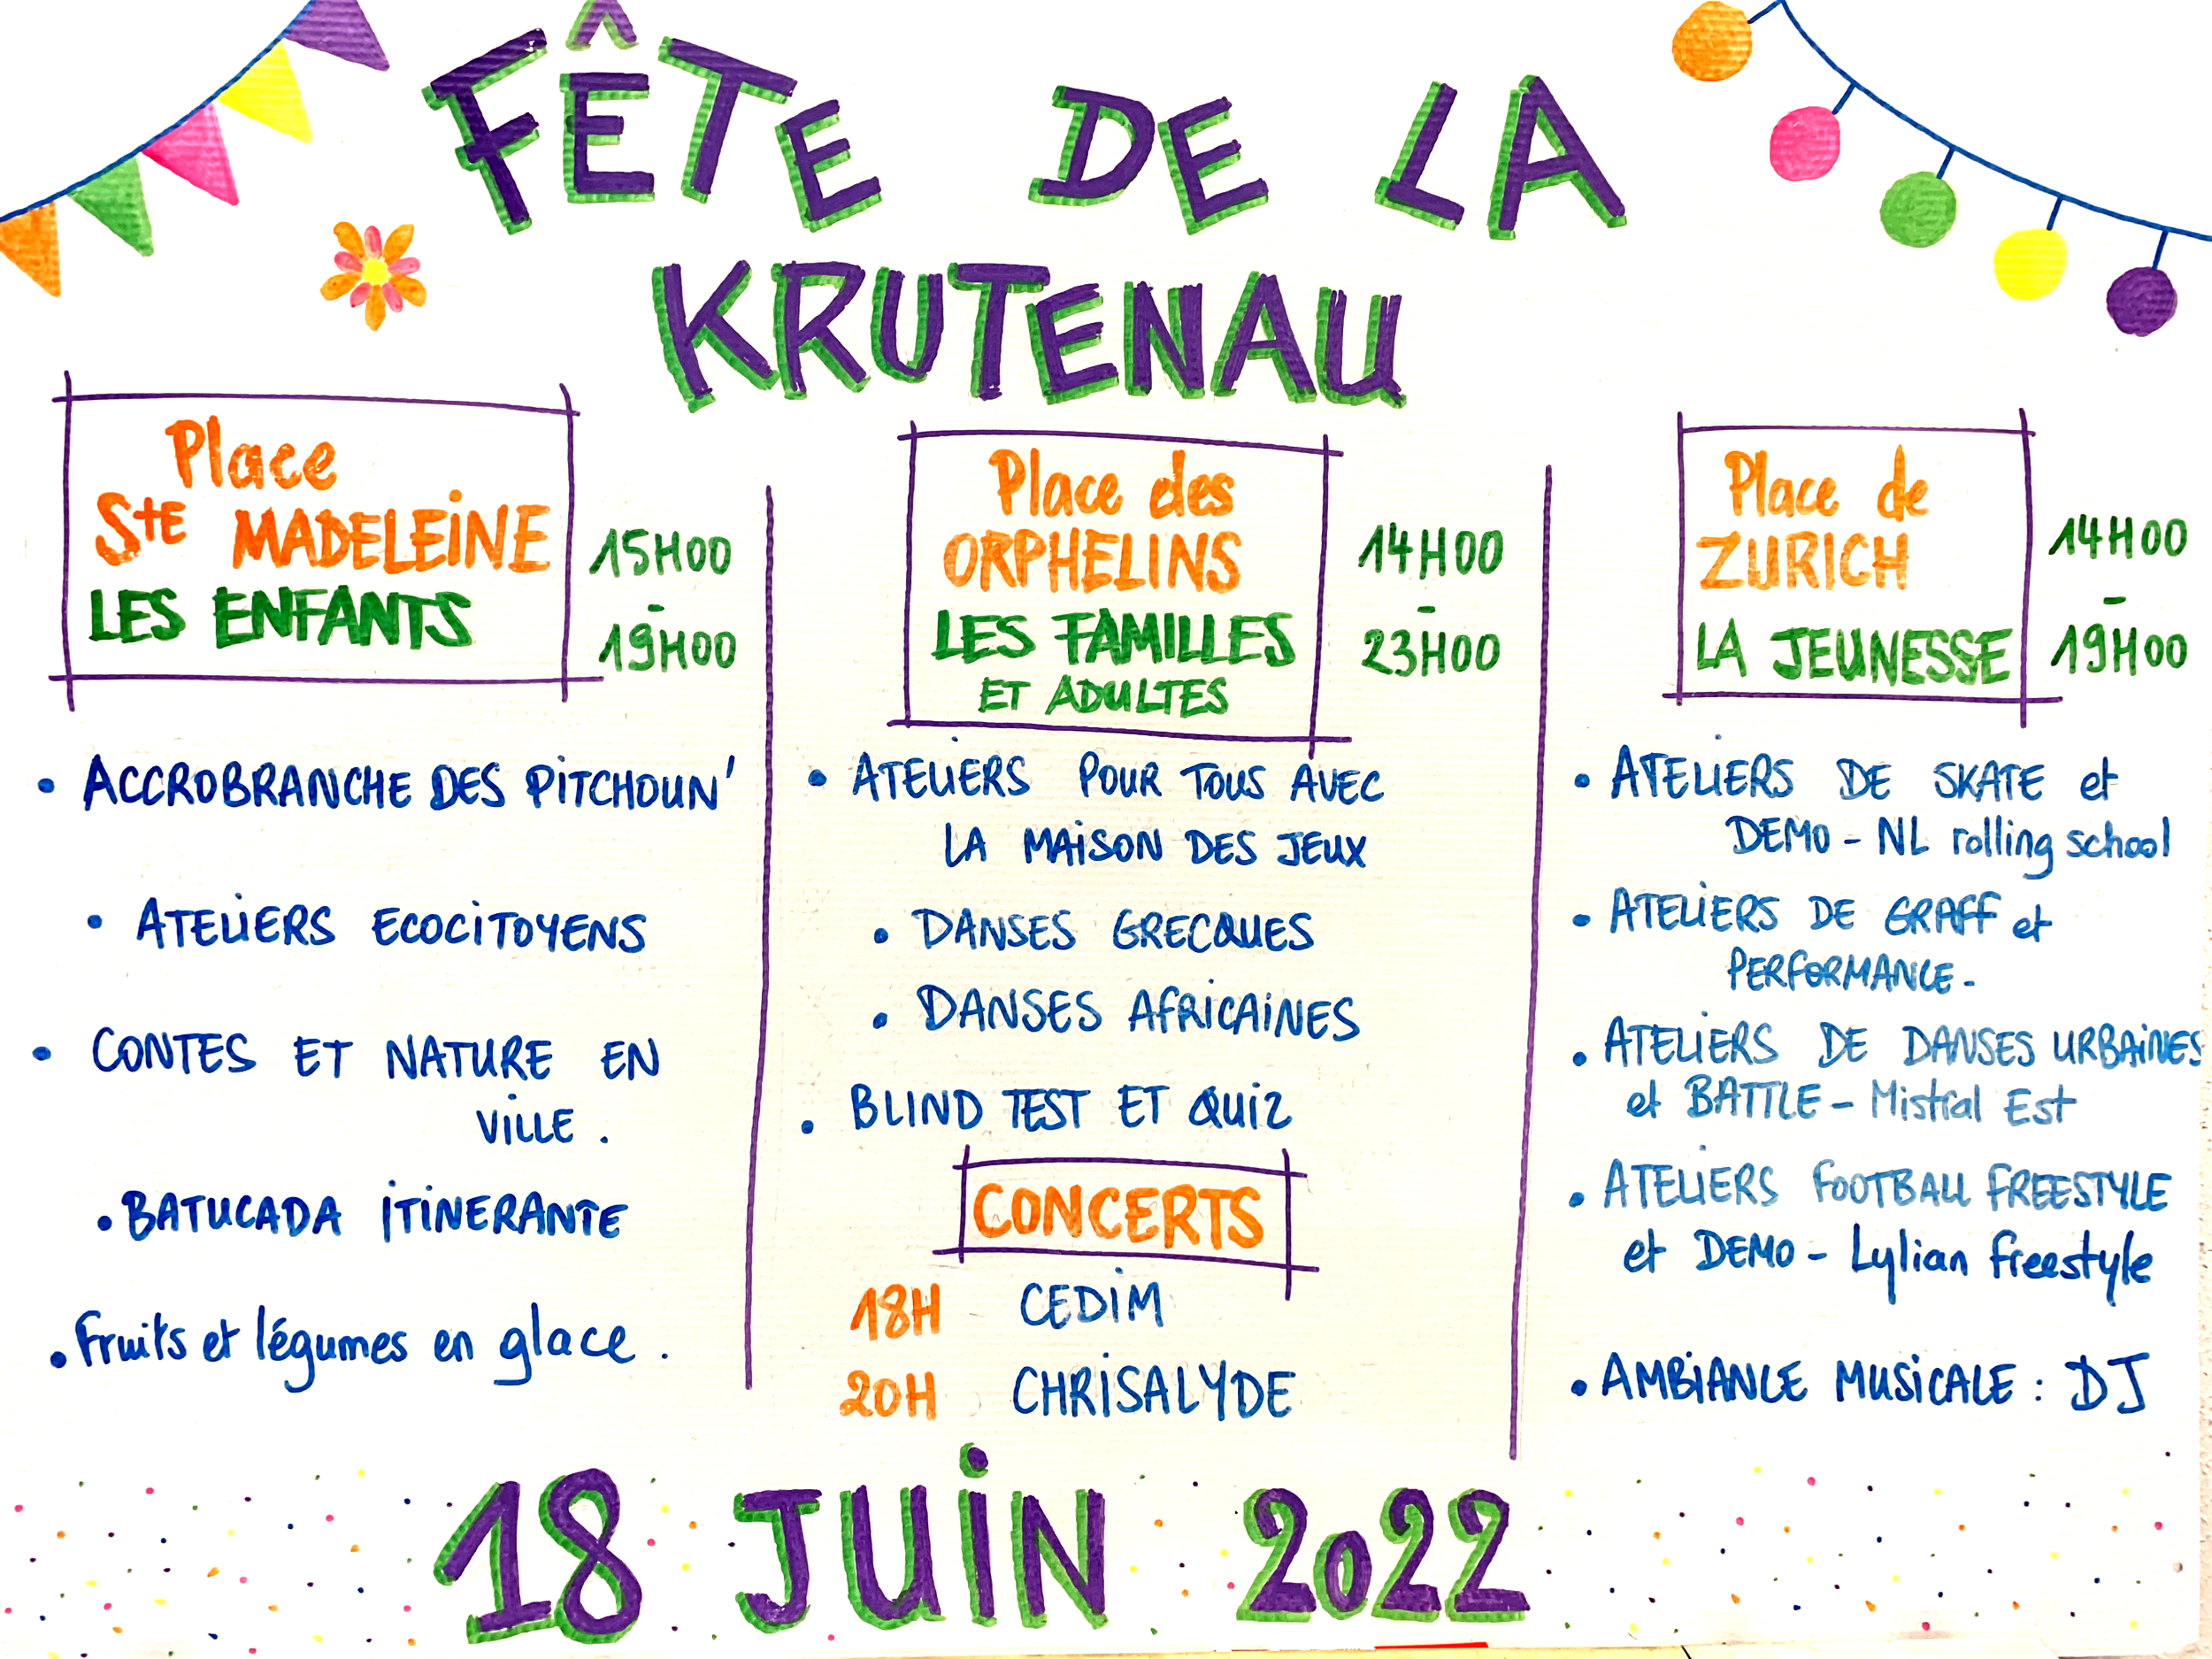 FÊTE DE LA
KRUTENAU
Place
Ste MADELEINE
LES ENFANTS
15H00
-
19H00
• ACCROBRANCHE DES PITCHOUN'
• ATELIERS ECOCITOYENS
• CONTES ET NATURE EN
VILLE.
• BATUCADA ITINERANTE
• Fruits et légumes en glace.
Place des
ORPHELINS
LES FAMILLES
ET ADULTES
14H00
-
23H00
• ATELIERS POUR TOUS AVEC
LA MAISON DES JEUX
• DANSES GRECQUES
• DANSES AFRICAINES
• BLIND TEST ET QUIZ
CONCERTS
18H CEDIM
20H CHRISALYDE
Place de
ZURICH
LA JEUNESSE
14H00
-
19H00
• ATELIERS DE SKATE et
DEMO - NL rolling school
• ATELIERS DE GRAFF et
PERFORMANCE-
• ATELIERS DE DANSES URBAINES
et BATTLE - Mistral Est
• ATELIERS FOOTBALL FREESTYLE
et DEMO - Lylian freestyle
• AMBIANCE MUSICALE : DJ
18 JUIN 2022